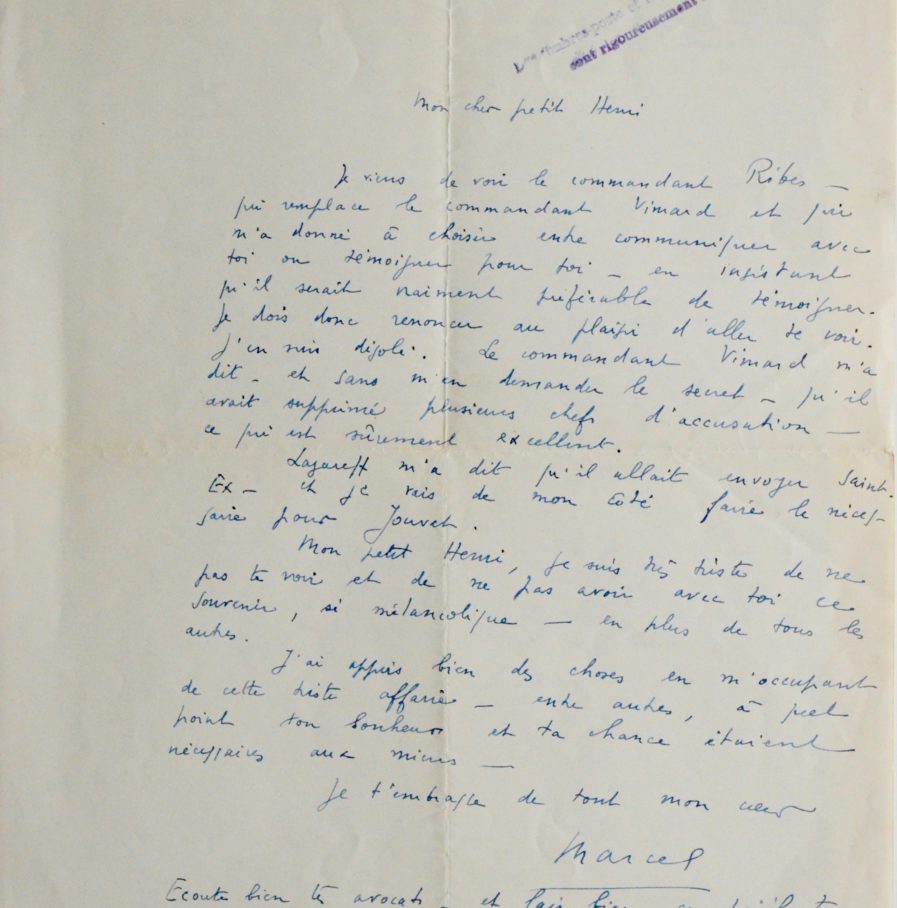 timbres-poste et
sont rigoureusement
Mon cher petit Henri
Je viens de voir le commandant Ribes —
qui remplace le commandant Vimard et qui
m'a donné à choisir entre communiquer avec
toi ou témoigner pour toi — en insistant
qu'il serait vraiment préférable de témoigner.
Je dois donc renoncer au plaisir d'aller te voir.
J'en suis désolé. Le commandant Vimard m'a
dit — et sans m'en demander le secret — qu'il
avait supprimé plusieurs chefs d'accusation —
ce qui est sûrement excellent.
Lazareff m'a dit qu'il allait envoyer Saint-
Ex — et je vais de mon côté faire le néces-
saire pour Jouvet.
Mon petit Henri, je suis très triste de ne
pas te voir et de ne pas avoir avec toi ce
souvenir, si mélancolique — en plus de tous les
autres.
J'ai appris bien des choses en m'occupant
de cette triste affaire — entre autres, à quel
point ton bonheur et ta chance étaient
nécessaires aux miens —
Je t'embrasse de tout mon cœur
Marcel
Ecoute bien tes avocats — et fais bien